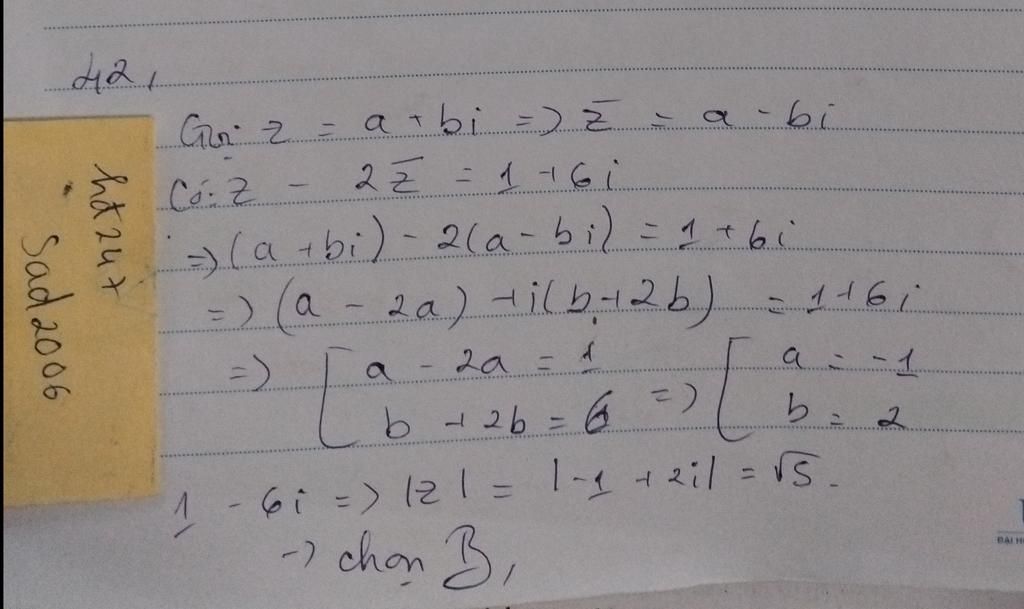 42,
Gọi z = a + bi => z̄ = a - bi
Có: z - 2z̄ = 1 + 6i
=> (a + bi) - 2(a - bi) = 1 + 6i
=> (a - 2a) + i(b + 2b) = 1 + 6i
=> [ a - 2a = 1
b + 2b = 6 => [ a = -1
b = 2
1 - 6i => |z| = |-1 + 2i| = √5.
-> chọn B,
hd247
Sad2006
ĐẠI H